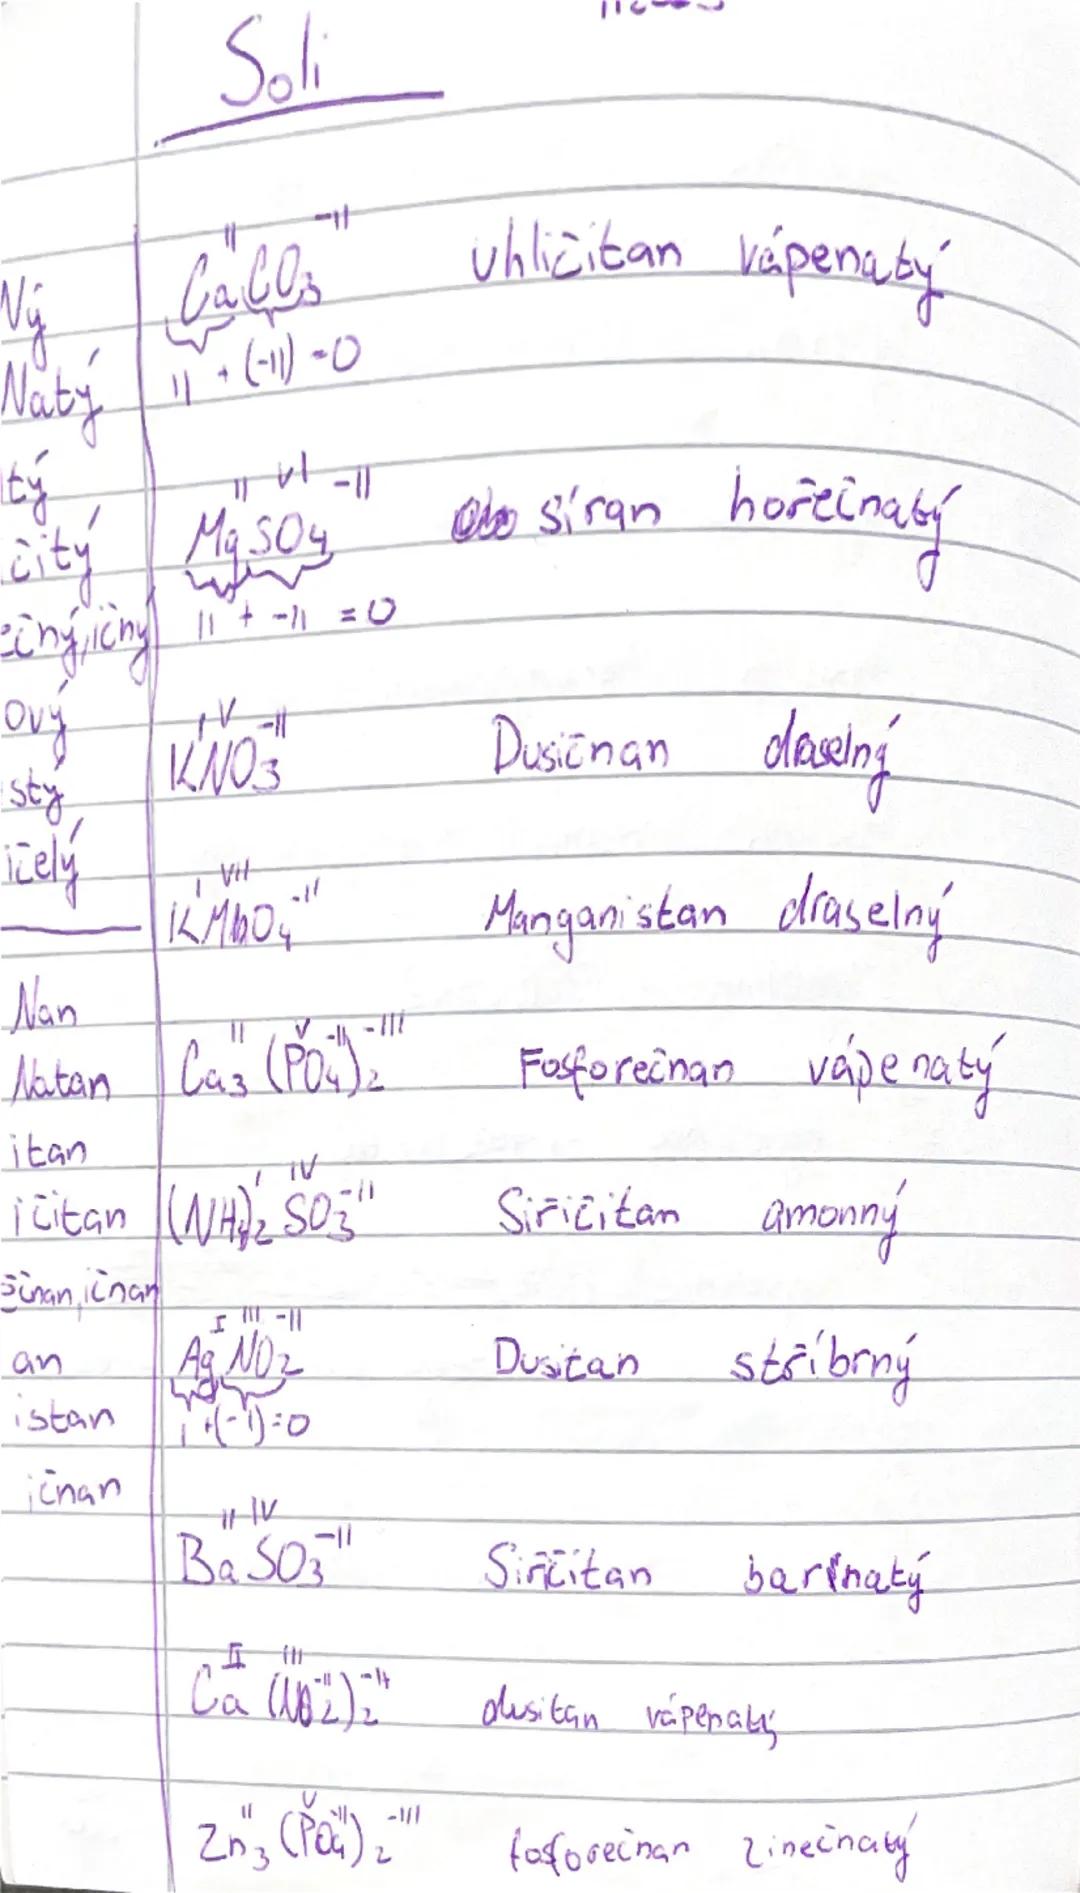 Soli
Ný
Natý
itý
ičitý
ečný, ičný
Ový
istý
ičelý
Nan
Natan
itan
ičitan
ečnan, ičnan
an
istan
ičnan
II -II
CaCO3 Uhličitan vápenatý
II + (-II) = 0
II VI -II
MgSO4 síran hořečnatý
II + -II = 0
I V -II
KNO3 Dusičnan draselný
I VII -II
KMnO4 Manganistan draselný
II V -II -III
Ca3 (PO4)2 Fosforečnan vápenatý
I IV -II
(NH4)2 SO3 Siřičitan amonný
I III -II
AgNO2 Dusitan stříbrný
I + (-I) = 0
II IV -II
BaSO3 Siřičitan barnatý
II III -II -I
Ca (NO2)2 dusitan vápenatý
II V -II -III
Zn3 (PO4)2 fosforečnan zinečnatý